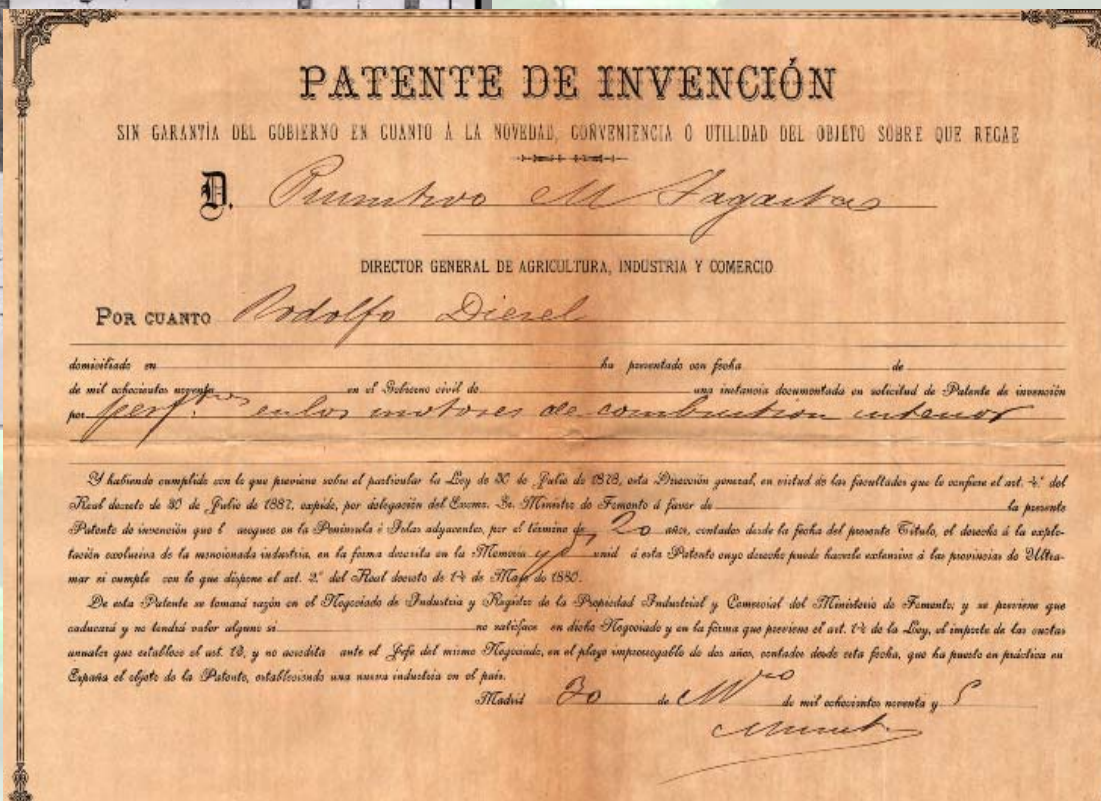 PATENTE DE INVENCIÓN
SIN GARANTÍA DEL GOBIERNO EN CUANTO Á LA NOVEDAD, CONVENIENCIA Ó UTILIDAD DEL OBJETO SOBRE QUE RECAE
D. Primitivo M Sagasta
DIRECTOR GENERAL DE AGRICULTURA, INDUSTRIA Y COMERCIO
POR CUANTO Rodolfo Diesel
domiciliado en ha presentado con fecha de
de mil ochocientos noventa en el Gobierno civil de una instancia documentada en solicitud de Patente de invención
por perf.tos en los motores de combustion interior
Y habiendo cumplido con lo que previene sobre el particular la Ley de 30 de Julio de 1878, esta Dirección general, en virtud de las facultades que le confiere el art. 4.º del
Real decreto de 30 de Julio de 1887, expide, por delegación del Excmo. Sr. Ministro de Fomento á favor de la presente
Patente de invención que l asegure en la Península é Islas adyacentes, por el término de 20 años, contados desde la fecha del presente Título, el derecho á la explo-
tación exclusiva de la mencionada industria, en la forma descrita en la Memoria unid á esta Patente cuyo derecho puede hacerle extensivo á las provincias de Ultra-
mar si cumple con lo que dispone el art. 2.º del Real decreto de 14 de Mayo de 1880.
De esta Patente se tomará razón en el Negociado de Industria y Registro de la Propiedad Industrial y Comercial del Ministerio de Fomento; y se previene que
caducará y no tendrá valor alguno si no satisface en dicho Negociado y en la forma que previene el art. 14 de la Ley, el importe de las cuotas
anuales que establece el art. 13, y no acredita ante el Jefe del mismo Negociado, en el plazo improrrogable de dos años, contados desde esta fecha, que ha puesto en práctica en
España el objeto de la Patente, estableciendo una nueva industria en el país.
Madrid 30 de de mil ochocientos noventa y 5